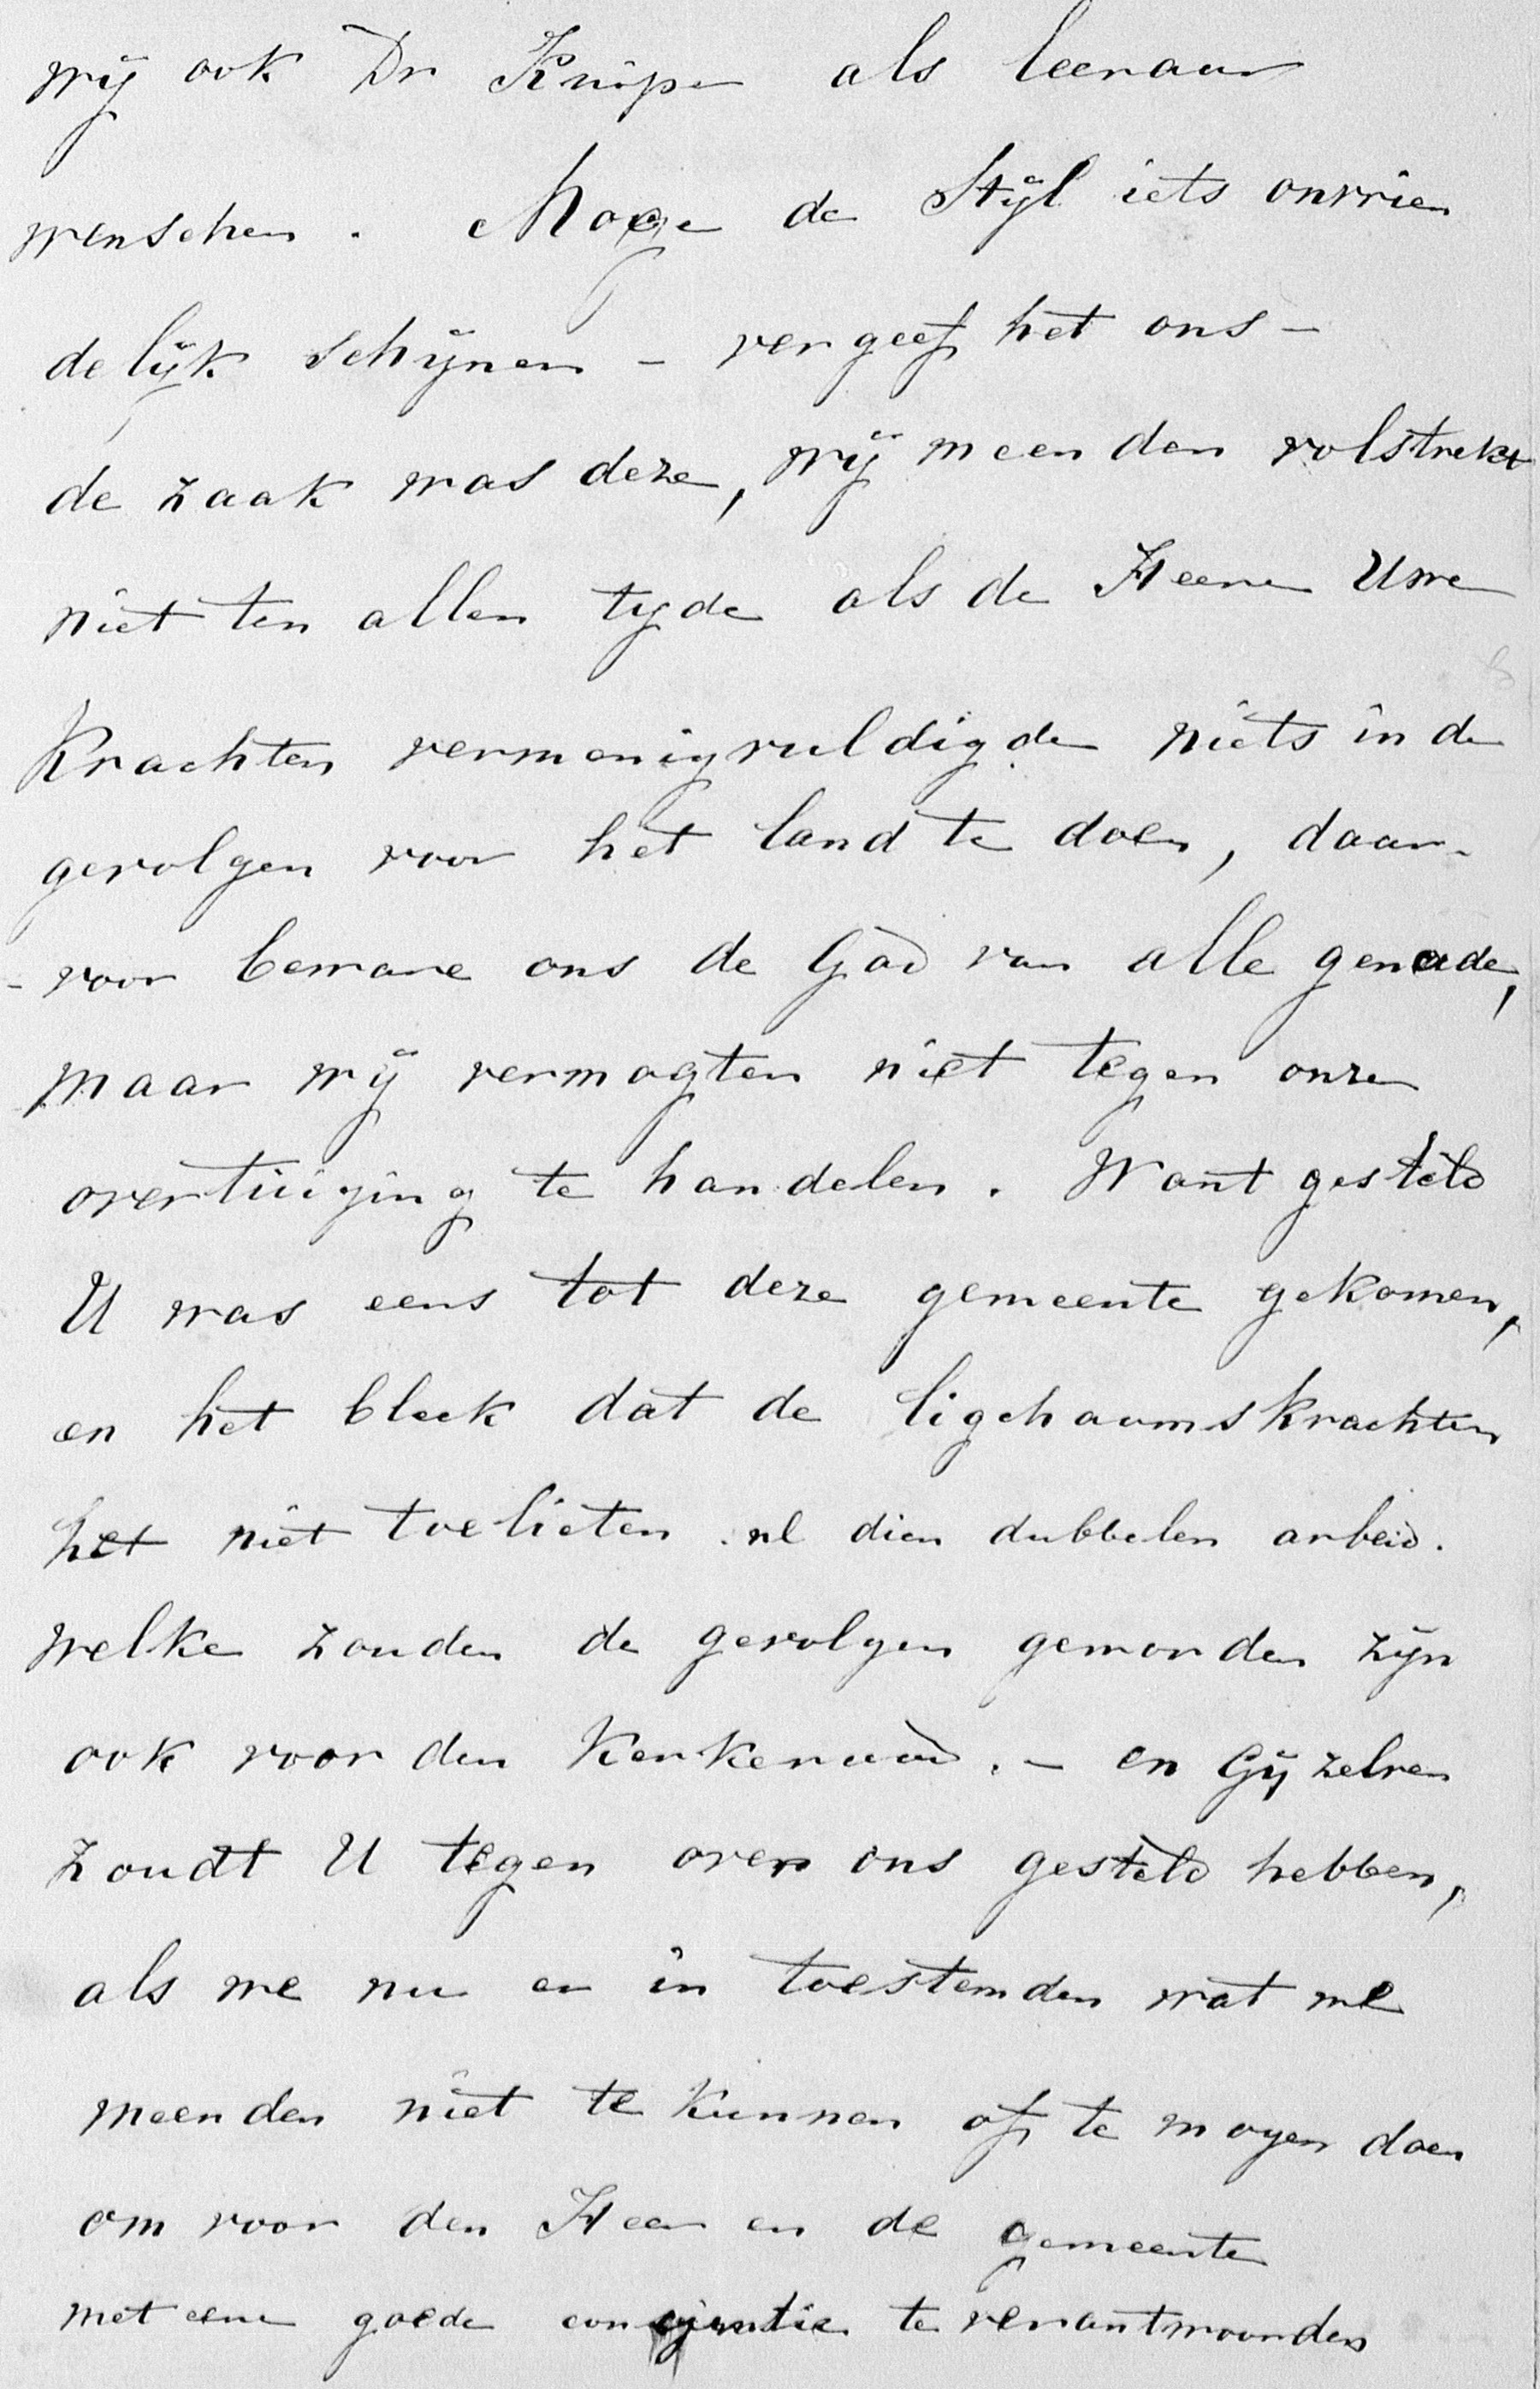 wij ook Dr Kuiper als leeraar
wenschen. Moge de Stijl iets onvrien
delijk schijnen – vergeef het ons –
de zaak was deze, wij meenden volstrekt
niet ten allen tyde als de Heere Uwe
Krachten vermenigvuldigde niets in de
gevolgen voor het land te doen, daar-
-voor beware ons de God van alle genade,
maar wij vermogten niet tegen onze
overtuiging te handelen. Want gesteld
U was eens tot deze gemeente gekomen,
en het bleek dat de ligchaamskrachten
het niet toelieten. nl dien dubbelen arbeid.
welke zouden de gevolgen geworden zijn
ook voor den Kerkeraad. – en Gij zelven
zoudt U tegen over ons gesteld hebben,
als we nu er in toestemden wat we
meenden niet te kunnen of te mogen doen
om voor den Heer en de gemeente
met eene goede consientie te verantwoorden